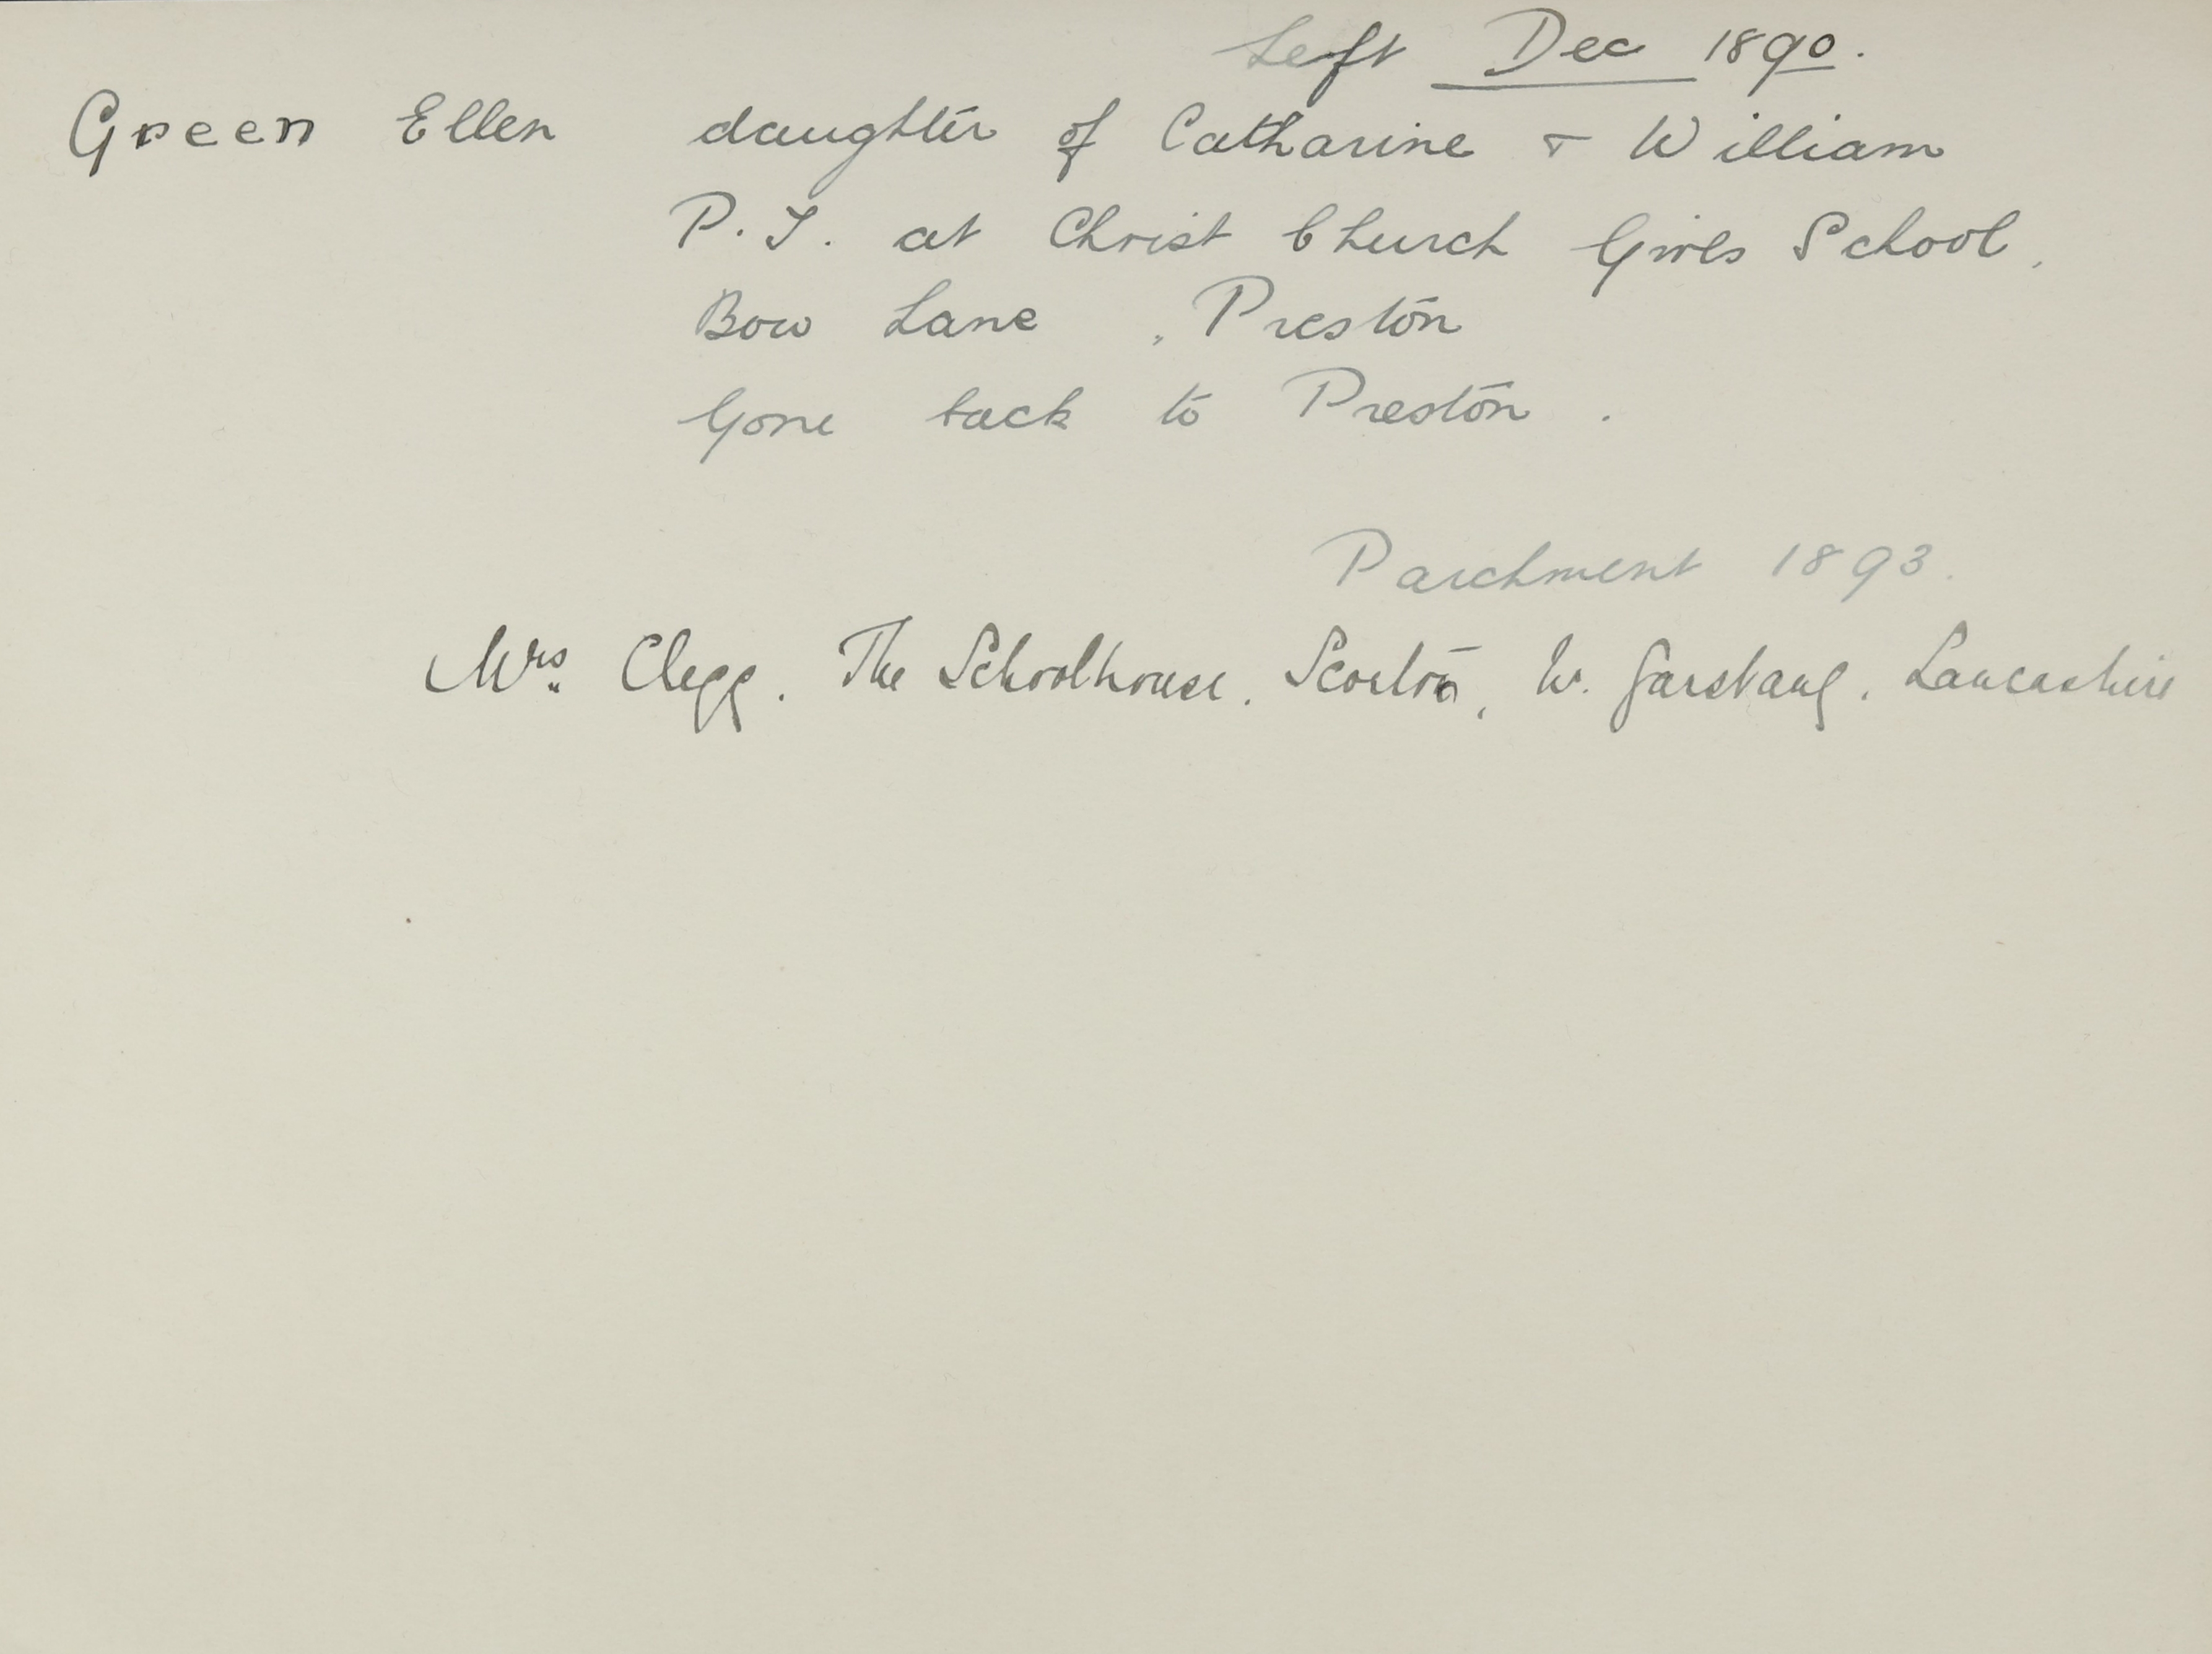 Left Dec 1890.
Green Ellen daughter of Catharine & William
P.T. at Christ Church Girls School,
Bow Lane, Preston
Gone back to Preston.
Parchment 1893.
Mrs. Clegg. The Schoolhouse. Scorton, W. Garstang. Lancashire